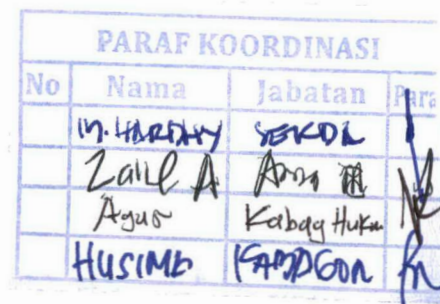 PARAF KOORDINASI
No Nama Jabatan Para
M. HARDHY SEKDA
Zaill A
Agus Kabag Hukum
HUSIMB